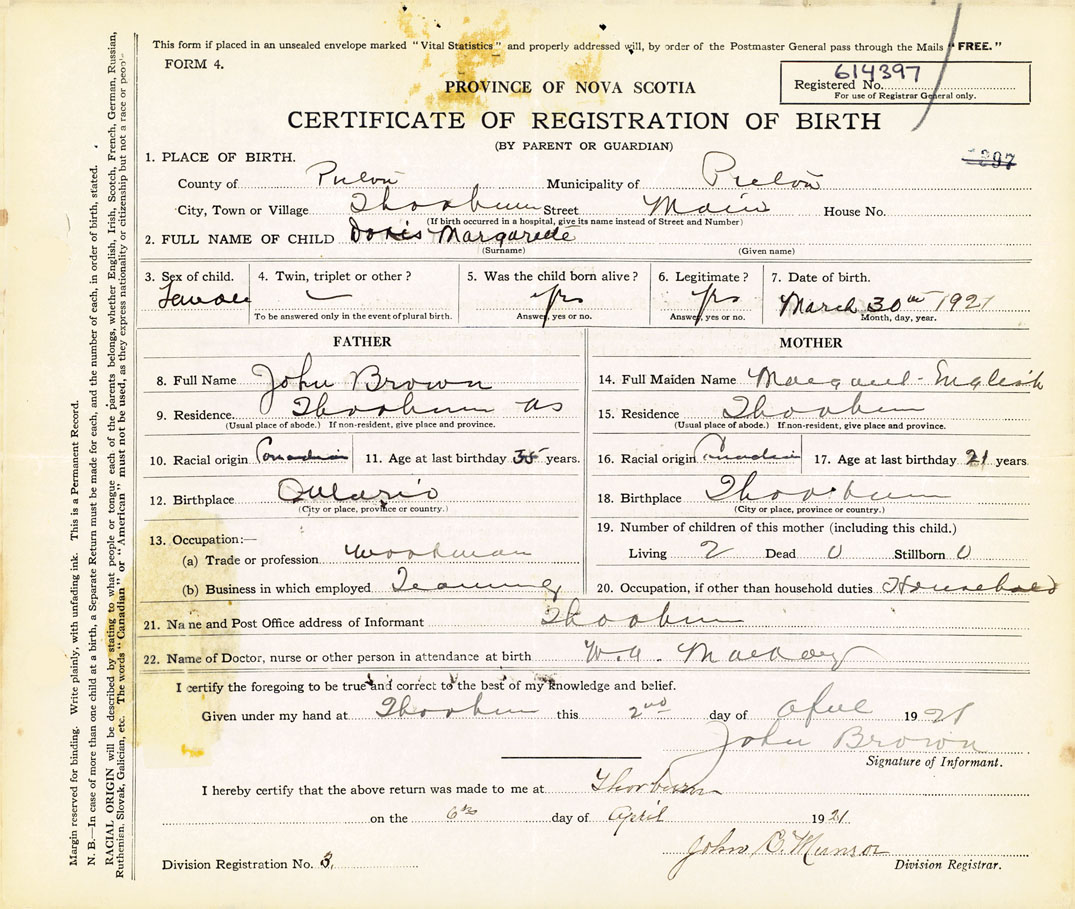 This form if placed in an unsealed envelope marked "Vital Statistics" and properly addressed will, by order of the Postmaster General pass through the Mails "FREE."
FORM 4.
614397
Registered No.
For use of Registrar General only.
PROVINCE OF NOVA SCOTIA
CERTIFICATE OF REGISTRATION OF BIRTH
(BY PARENT OR GUARDIAN)
1. PLACE OF BIRTH.
County of Pictou Municipality of Pictou
City, Town or Village Thorburn Street Main House No.
(If birth occurred in a hospital, give its name instead of Street and Number)
2. FULL NAME OF CHILD Doris Margarete
(Surname) (Given name)
3. Sex of child. 4. Twin, triplet or other? 5. Was the child born alive? 6. Legitimate? 7. Date of birth.
Female — yes yes March 30th 1921
To be answered only in the event of plural birth. Answer, yes or no. Answer, yes or no. Month, day, year.
FATHER MOTHER
8. Full Name John Brown 14. Full Maiden Name Margaret English
9. Residence. Thorburn NS 15. Residence Thorburn
(Usual place of abode.) If non-resident, give place and province. (Usual place of abode.) If non-resident, give place and province.
10. Racial origin Canadian 11. Age at last birthday 35 years. 16. Racial origin Canadian 17. Age at last birthday 21 years
12. Birthplace Ontario 18. Birthplace Thorburn
(City or place, province or country.) (City or place, province or country.)
13. Occupation:— 19. Number of children of this mother (including this child.)
(a) Trade or profession Workman Living 2 Dead 0 Stillborn 0
(b) Business in which employed Teaming 20. Occupation, if other than household duties Household
21. Name and Post Office address of Informant Thorburn
22. Name of Doctor, nurse or other person in attendance at birth W. A. MacKay
I certify the foregoing to be true and correct to the best of my knowledge and belief.
Given under my hand at Thorburn this 2nd day of April 1921
John Brown
Signature of Informant.
I hereby certify that the above return was made to me at Thorburn
on the 6th day of April 1921
John C. Munro
Division Registration No. 3. Division Registrar.
Margin reserved for binding. Write plainly, with unfading ink. This is a Permanent Record.
N. B.—In case of more than one child at a birth, a Separate Return must be made for each, and the number of each, in order of birth, stated.
RACIAL ORIGIN will be described by stating to what people or tongue each of the parents belongs, whether English, Irish, Scotch, French, German, Russian,
Ruthenian, Slovak, Galician, etc. The words "Canadian" or "American" must not be used, as they express nationality or citizenship but not a race or people